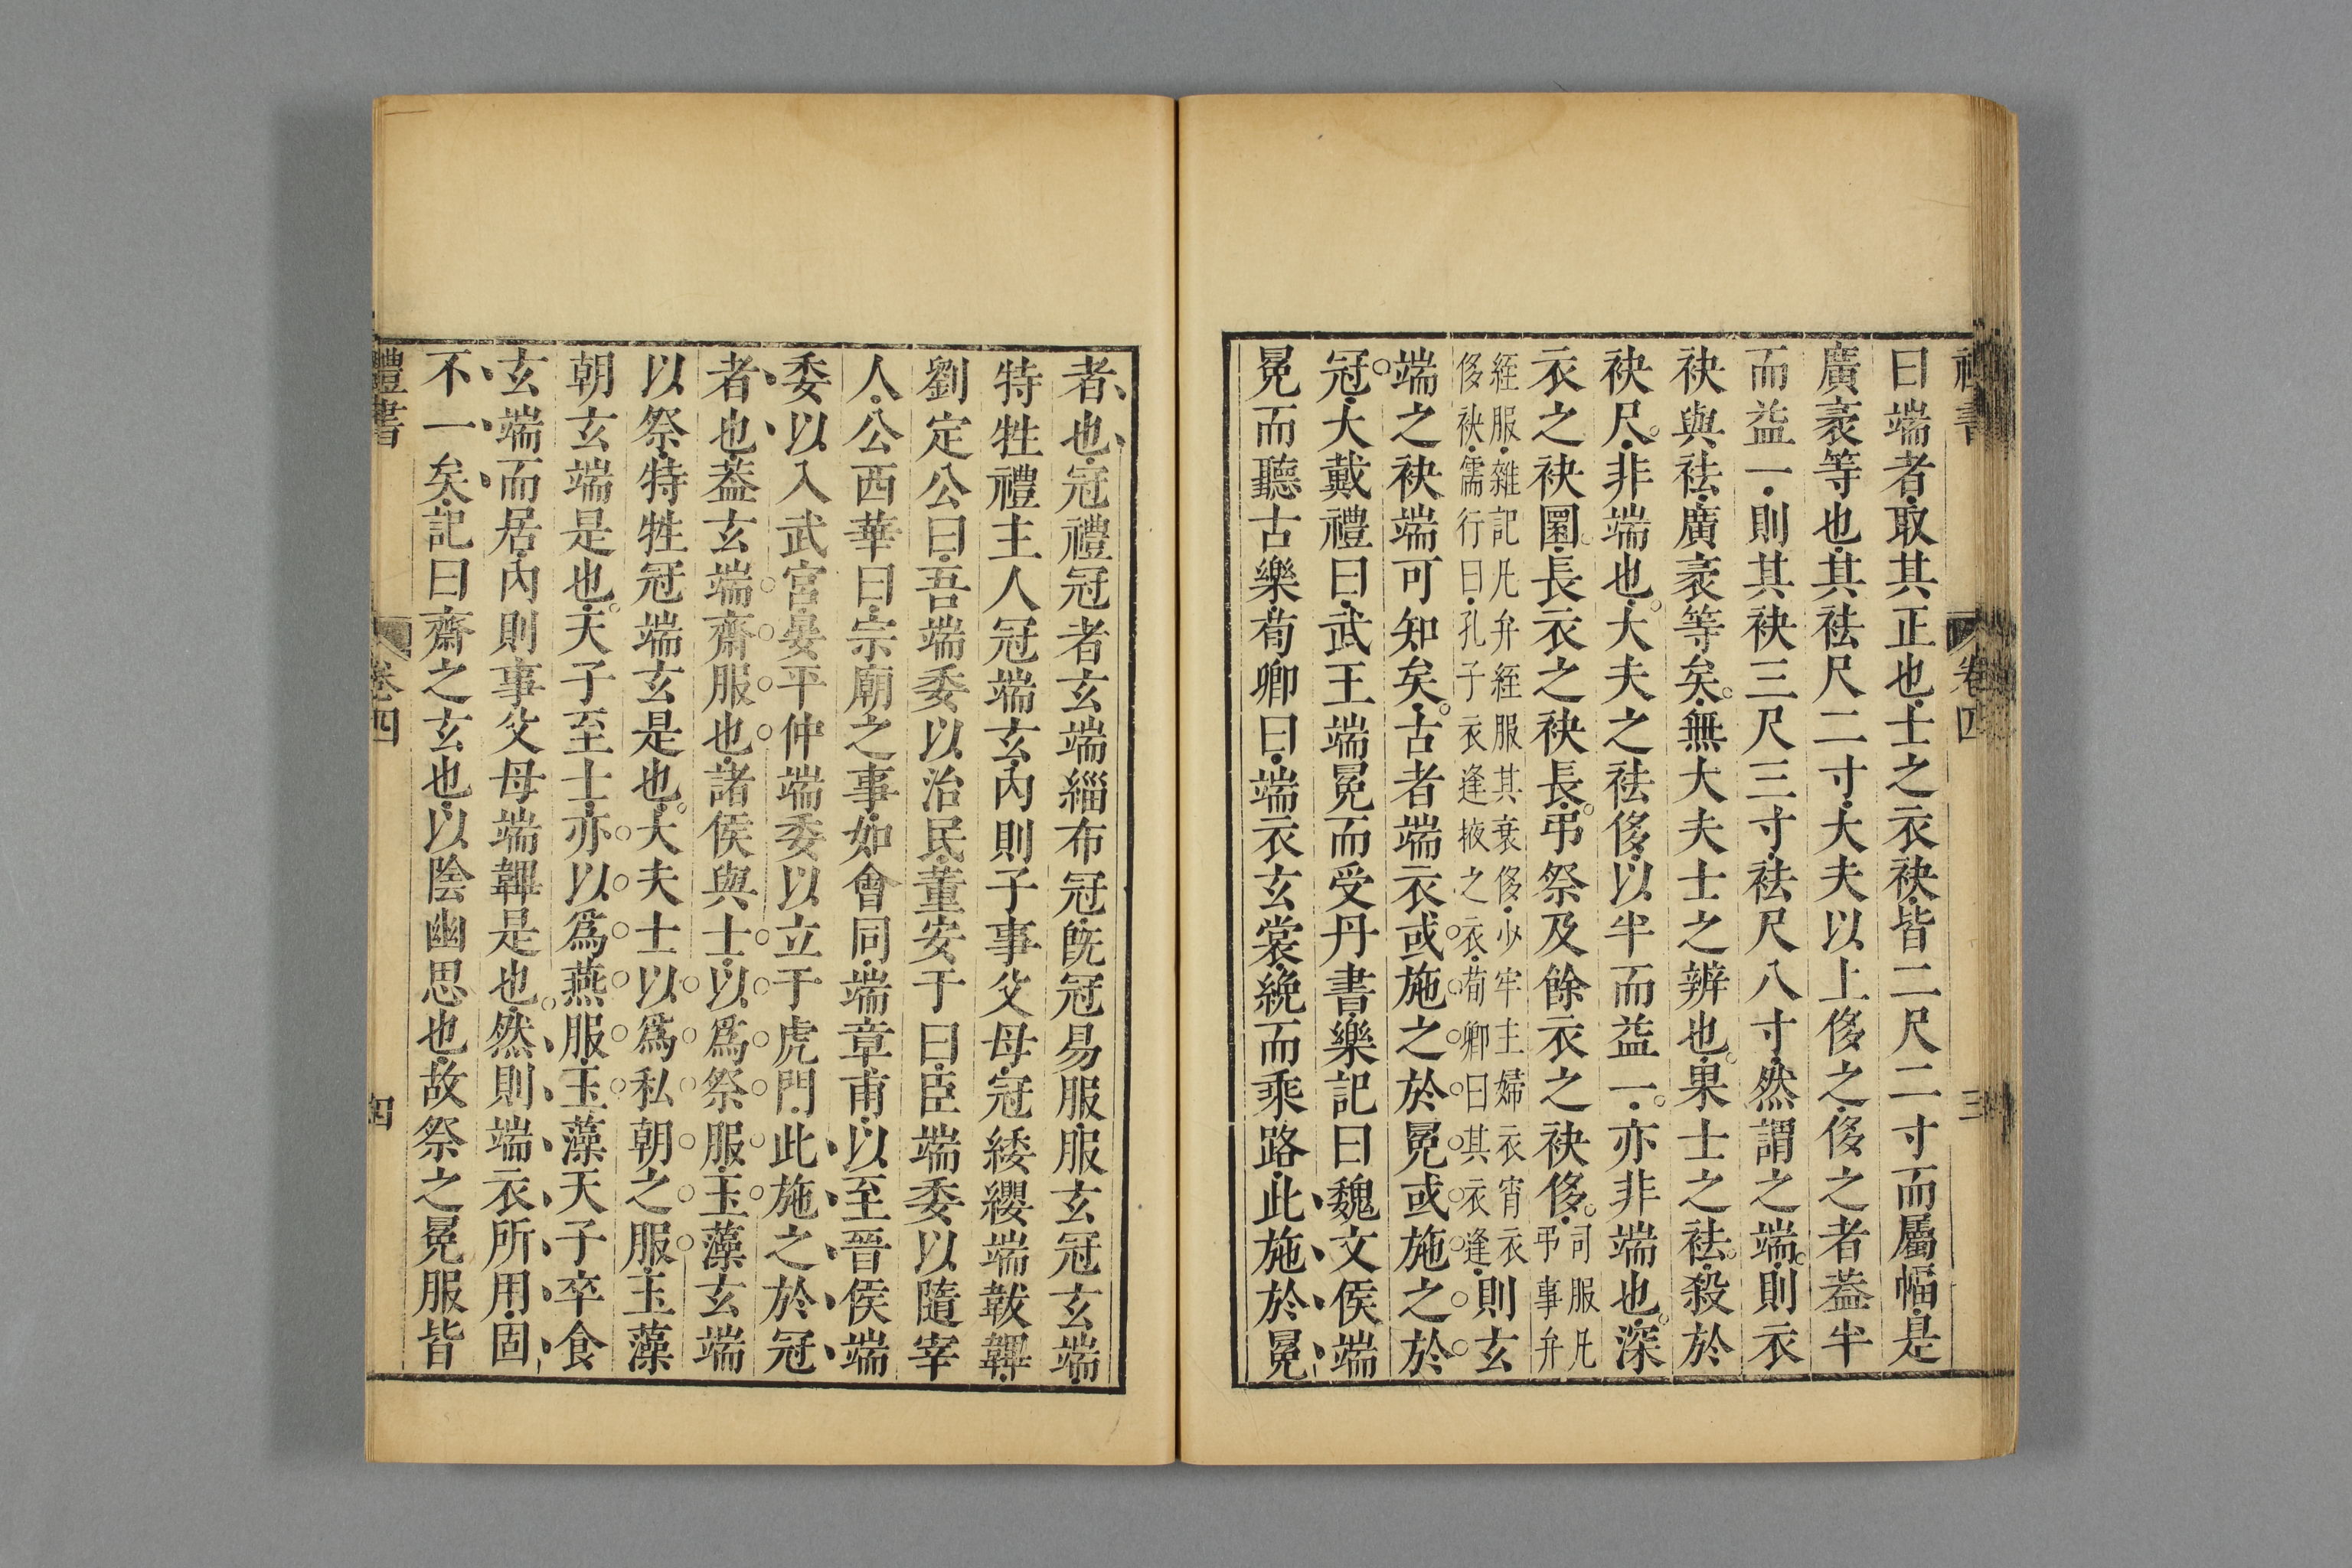 禮書 卷四 三
曰端者取其正也士之衣袂皆二尺二寸而屬幅是
廣袤等也其袪尺二寸大夫以上侈之侈之者葢半
而益一則其袂三尺三寸袪尺八寸然謂之端則衣
袂與袪廣袤等矣無大夫士之辨也果士之袪殺於
袂尺非端也大夫之袪侈以半而益一亦非端也深
衣之袂圜長衣之袂長弔祭及餘衣之袂侈司服凡弔事弁
絰服雜記凡弁絰服其衰侈少牢主婦衣宵衣侈袂儒行曰孔子衣逢掖之衣荀卿曰其衣逢則玄
端之袂端可知矣古者端衣或施之於冕或施之於
冠大戴禮曰武王端冕而受丹書樂記曰魏文侯端
冕而聽古樂荀卿曰端衣玄裳絻而乘路此施於冕
者也冠禮冠者玄端緇布冠旣冠易服服玄冠玄端
特牲禮主人冠端玄內則子事父母冠緌纓端韍韠
劉定公曰吾端委以治民董安于曰臣端委以隨宰
人公西華曰宗廟之事如會同端章甫以至晉侯端
委以入武宮晏平仲端委以立于虎門此施之於冠
者也葢玄端齋服也諸侯與士以爲祭服玉藻玄端
以祭特牲冠端玄是也大夫士以爲私朝之服玉藻
朝玄端是也天子至士亦以爲燕服玉藻天子卒食
玄端而居內則事父母端韠是也然則端衣所用固
不一矣記曰齋之玄也以陰幽思也故祭之冕服皆
禮書 卷四 四